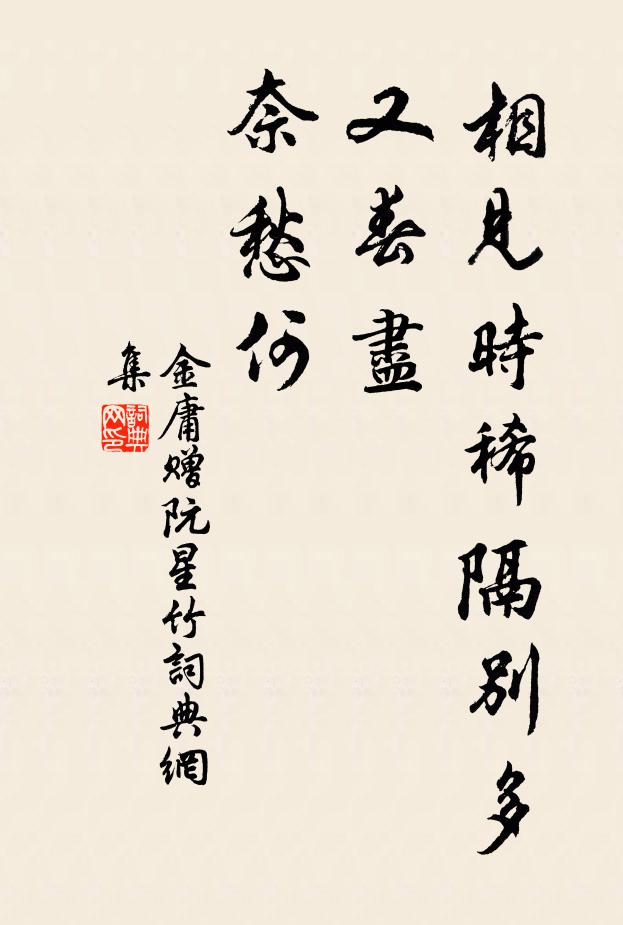 相見時稀隔別多
又春盡
奈愁何
金庸贈阮星竹詞典網
集
詞典
网印